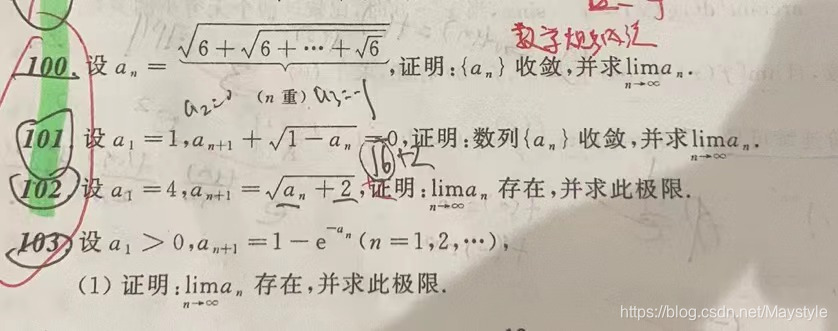 数学归纳法
100. 设 aₙ = √(6+√(6+⋯+√6)), 证明:{aₙ} 收敛,并求 lim aₙ.
n→∞
a₂=0 (n 重) a₃=-1
101. 设 a₁ = 1, aₙ₊₁ + √(1-aₙ) = 0, 证明:数列{aₙ} 收敛,并求 lim aₙ.
n→∞
√6+2
102. 设 a₁ = 4, aₙ₊₁ = √(aₙ+2), 证明: lim aₙ 存在,并求此极限.
n→∞
103. 设 a₁ > 0, aₙ₊₁ = 1 - e^(-aₙ) (n = 1,2,⋯),
(1) 证明: lim aₙ 存在,并求此极限.
n→∞
https://blog.csdn.net/Maystyle